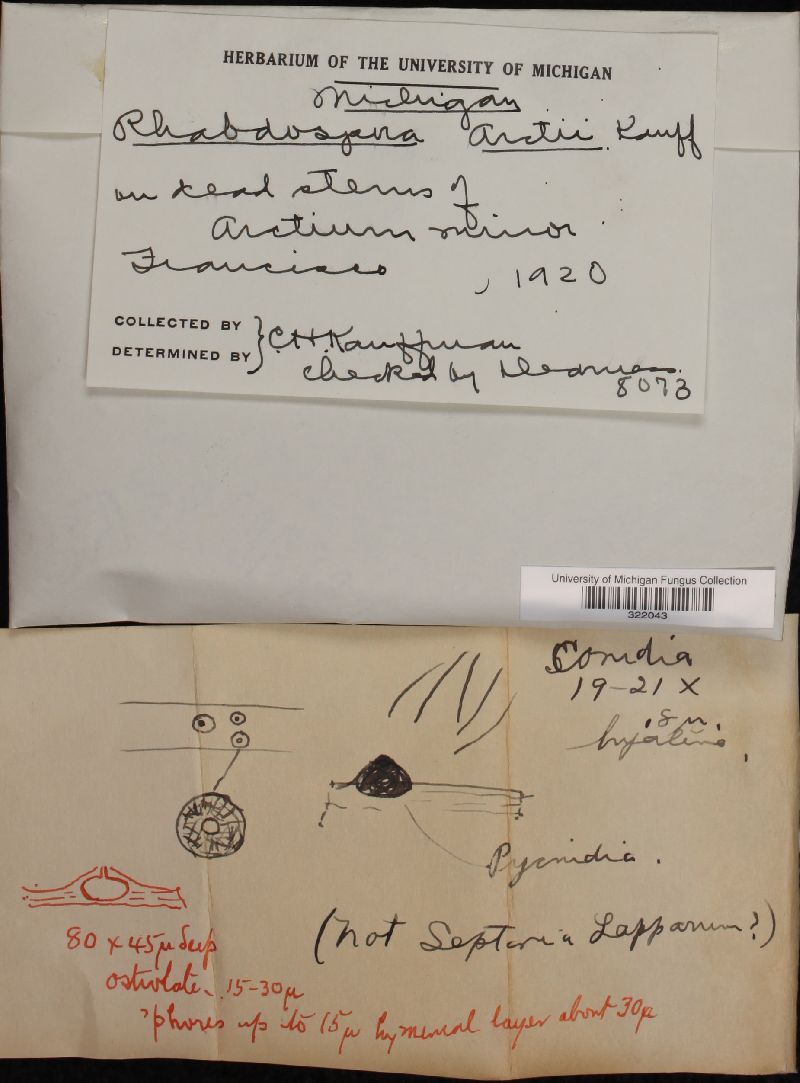 HERBARIUM OF THE UNIVERSITY OF MICHIGAN
Michigan
Rhabdospora Arctii Kauff
on dead stems of
Arctium minor
Francisco , 1920
COLLECTED BY
DETERMINED BY
C.H. Kauffman
checked by Dearness.
8073
University of Michigan Fungus Collection
322043
Conidia
19-21 X
.8 µ.
hyaline,
Pycnidia.
(not Septoria Lapparum?)
80 x 45µ deep
ostiolate, 15-30µ
'phores up to 15µ hymenial layer about 30µ